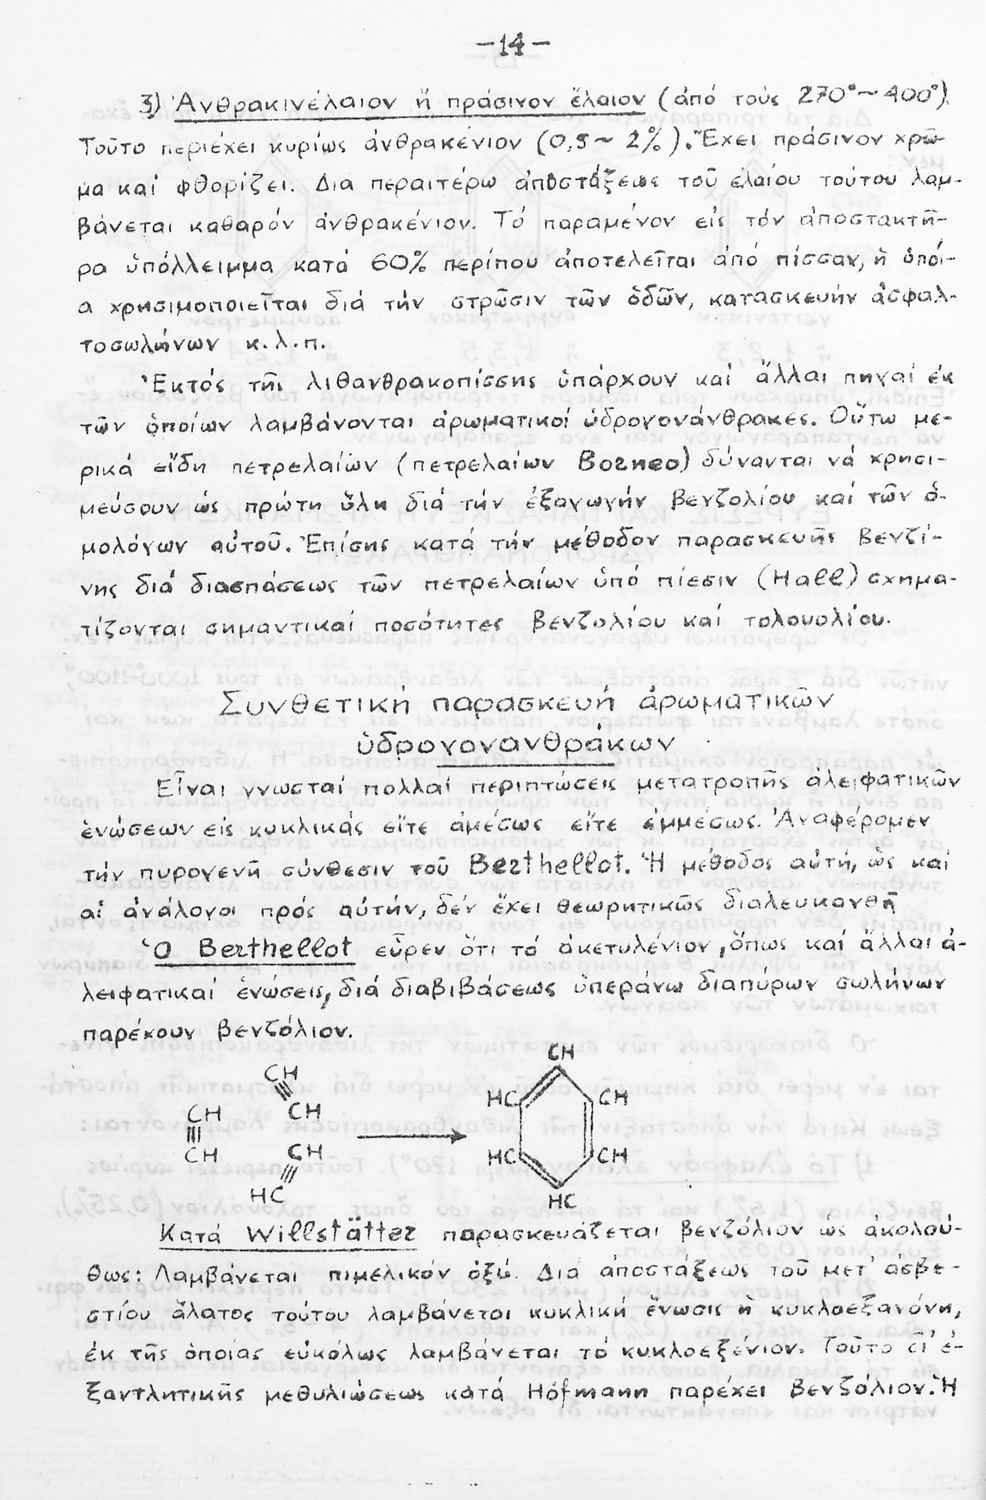 -14-
3) Ἀνθρακινέλαιον ἤ πράσινον ἔλαιον (ἀπό τούς 270°~400°).
Τοῦτο περιέχει κυρίως ἀνθρακένιον (0,5~ 2%). Ἔχει πράσινον χρῶ-
μα καί φθορίζει. Δια περαιτέρω ἀποστάξεως τοῦ ἐλαίου τούτου λαμ-
βάνεται καθαρόν ἀνθρακένιον. Τό παραμένον εἰς τόν ἀποστακτῆ-
ρα ὑπόλλειμμα κατά 60% περίπου ἀποτελεῖται ἀπό πίσσαν, ἡ ὁποί-
α χρησιμοποιεῖται διά τήν στρῶσιν τῶν ὁδῶν, κατασκευήν ἀσφαλ-
τοσωλήνων κ.λ.π.
Ἐκτός τῆς λιθανθρακοπίσσης ὑπάρχουν καί ἄλλαι πηγαί ἐκ
τῶν ὁποίων λαμβάνονται ἀρωματικοί ὑδρογονάνθρακες. Οὕτω με-
ρικά εἴδη πετρελαίων (πετρελαίων Borneo) δύνανται νά χρησι-
μεύσουν ὡς πρώτη ὕλη διά τήν ἐξαγωγήν βενζολίου καί τῶν ὁ-
μολόγων αὐτοῦ. Ἐπίσης κατά τήν μέθοδον παρασκευῆς βενζί-
νης διά διασπάσεως τῶν πετρελαίων ὑπό πίεσιν (Hall) σχημα-
τίζονται σημαντικαί ποσότητες βενζολίου καί τολουολίου.
Συνθετική παρασκευή ἀρωματικῶν
ὑδρογονανθράκων
Εἶναι γνωσταί πολλαί περιπτώσεις μετατροπῆς ἀλειφατικῶν
ἑνώσεων εἰς κυκλικάς εἴτε ἀμέσως εἴτε ἐμμέσως. Ἀναφέρομεν
τήν πυρογενῆ σύνθεσιν τοῦ Berthellot. Ἡ μέθοδος αὐτή, ὡς καί
αἱ ἀνάλογοι πρός αὐτήν, δέν ἔχει θεωρητικῶς διαλευκανθῆ
Ὁ Berthellot εὗρεν ὅτι τό ἀκετυλένιον, ὅπως καί ἄλλαι ἀ-
λειφατικαί ἑνώσεις, διά διαβιβάσεως ὑπεράνω διαπύρων σωλήνων
παρέχουν βενζόλιον.
CH
CH
CH
CH
CH
HC
CH
HC
CH
HC
CH
HC
Κατά Willstätter παρασκευάζεται βενζόλιον ὡς ἀκολού-
θως: Λαμβάνεται πιμελικόν ὀξύ. Διά ἀποστάξεως τοῦ μετ' ἀσβε-
στίου ἅλατος τούτου λαμβάνεται κυκλική ἕνωσις ἡ κυκλοεξανόνη,
ἐκ τῆς ὁποίας εὐκόλως λαμβάνεται τό κυκλοεξένιον. Τοῦτο δι' ἐ-
ξαντλητικῆς μεθυλιώσεως κατά Hofmann παρέχει βενζόλιον. Ἡ